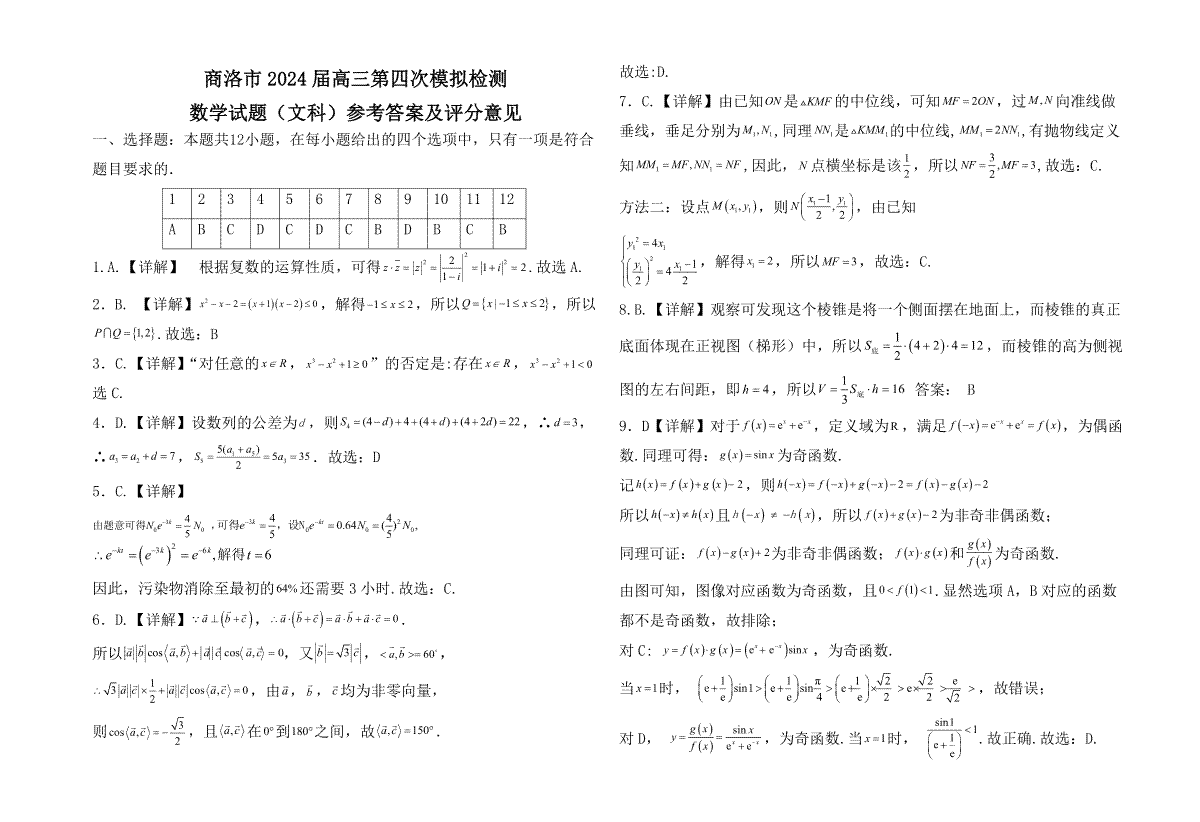 商洛市 2024 届高三第四次模拟检测
数学试题（文科）参考答案及评分意见
一、选择题：本题共12小题，在每小题给出的四个选项中，只有一项是符合
题目要求的.
1 2 3 4 5 6 7 8 9 10 11 12
A B C D C D C B D B C B
1.A.【详解】 根据复数的运算性质，可得 z·z̄ = |z|² = |2/(1−i)|² = |1+i|² = 2.故选A.
2. B. 【详解】x²−x−2=(x+1)(x−2)≤0，解得 −1≤x≤2，所以 Q={x|−1≤x≤2}，所以
P∩Q={1,2}.故选：B
3. C.【详解】“对任意的 x∈R，x³−x²+1≥0”的否定是:存在 x∈R，x³−x²+1<0
选C.
4. D.【详解】设数列的公差为d，则 S₄=(4−d)+4+(4+d)+(4+2d)=22，∴d=3，
∴a₃=a₂+d=7，S₅=5(a₁+a₅)/2=5a₃=35. 故选：D
5. C.【详解】
由题意可得N₀e⁻³ᵏ=4/5 N₀ ，可得e⁻³ᵏ=4/5，设N₀e⁻ᵏᵗ=0.64N₀=(4/5)²N₀,
∴e⁻ᵏᵗ=(e⁻³ᵏ)²=e⁻⁶ᵏ,解得t=6
因此，污染物消除至最初的64%还需要 3 小时.故选：C.
6. D.【详解】∵a⃗⊥(b⃗+c⃗)，∴a⃗·(b⃗+c⃗)=a⃗·b⃗+a⃗·c⃗=0.
所以|a⃗||b⃗|cos⟨a⃗,b⃗⟩+|a⃗||c⃗|cos⟨a⃗,c⃗⟩=0，又|b⃗|=√3|c⃗|，<a⃗,b⃗>=60°，
∴√3|a⃗||c⃗|×1/2+|a⃗||c⃗|cos⟨a⃗,c⃗⟩=0，由a⃗，b⃗，c⃗均为非零向量，
则cos⟨a⃗,c⃗⟩=−√3/2，且⟨a⃗,c⃗⟩在0°到180°之间，故⟨a⃗,c⃗⟩=150°.
故选:D.
7. C.【详解】由已知ON是△KMF的中位线，可知MF=2ON，过M,N向准线做
垂线，垂足分别为M₁,N₁,同理NN₁是△KMM₁的中位线,MM₁=2NN₁,有抛物线定义
知MM₁=MF,NN₁=NF,因此，N点横坐标是该1/2，所以NF=3/2,MF=3,故选：C.
方法二：设点M(x₁,y₁)，则N((x₁−1)/2,y₁/2)，由已知
{y₁²=4x₁
(y₁/2)²=4(x₁−1)/2，解得x₁=2，所以MF=3，故选：C.
8.B.【详解】观察可发现这个棱锥是将一个侧面摆在地面上，而棱锥的真正
底面体现在正视图（梯形）中，所以S底=1/2·(4+2)·4=12，而棱锥的高为侧视
图的左右间距，即h=4，所以V=1/3 S底·h=16 答案： B
9. D【详解】对于f(x)=eˣ+e⁻ˣ，定义域为R，满足f(−x)=e⁻ˣ+eˣ=f(x)，为偶函
数.同理可得：g(x)=sin x为奇函数.
记h(x)=f(x)+g(x)−2，则h(−x)=f(−x)+g(−x)−2=f(x)−g(x)−2
所以h(−x)≠h(x)且h(−x)≠−h(x)，所以f(x)+g(x)−2为非奇非偶函数；
同理可证：f(x)−g(x)+2为非奇非偶函数；f(x)·g(x)和g(x)/f(x)为奇函数.
由图可知，图像对应函数为奇函数，且0<f(1)<1.显然选项 A，B 对应的函数
都不是奇函数，故排除；
对 C: y=f(x)·g(x)=(eˣ+e⁻ˣ)sin x，为奇函数.
当x=1时，(e+1/e)sin1>(e+1/e)sin π/4=(e+1/e)×√2/2>e×√2/2>e/√2>，故错误；
对 D， y=g(x)/f(x)=sin x/(eˣ+e⁻ˣ)，为奇函数.当x=1时， sin1/(e+1/e)<1.故正确.故选：D.